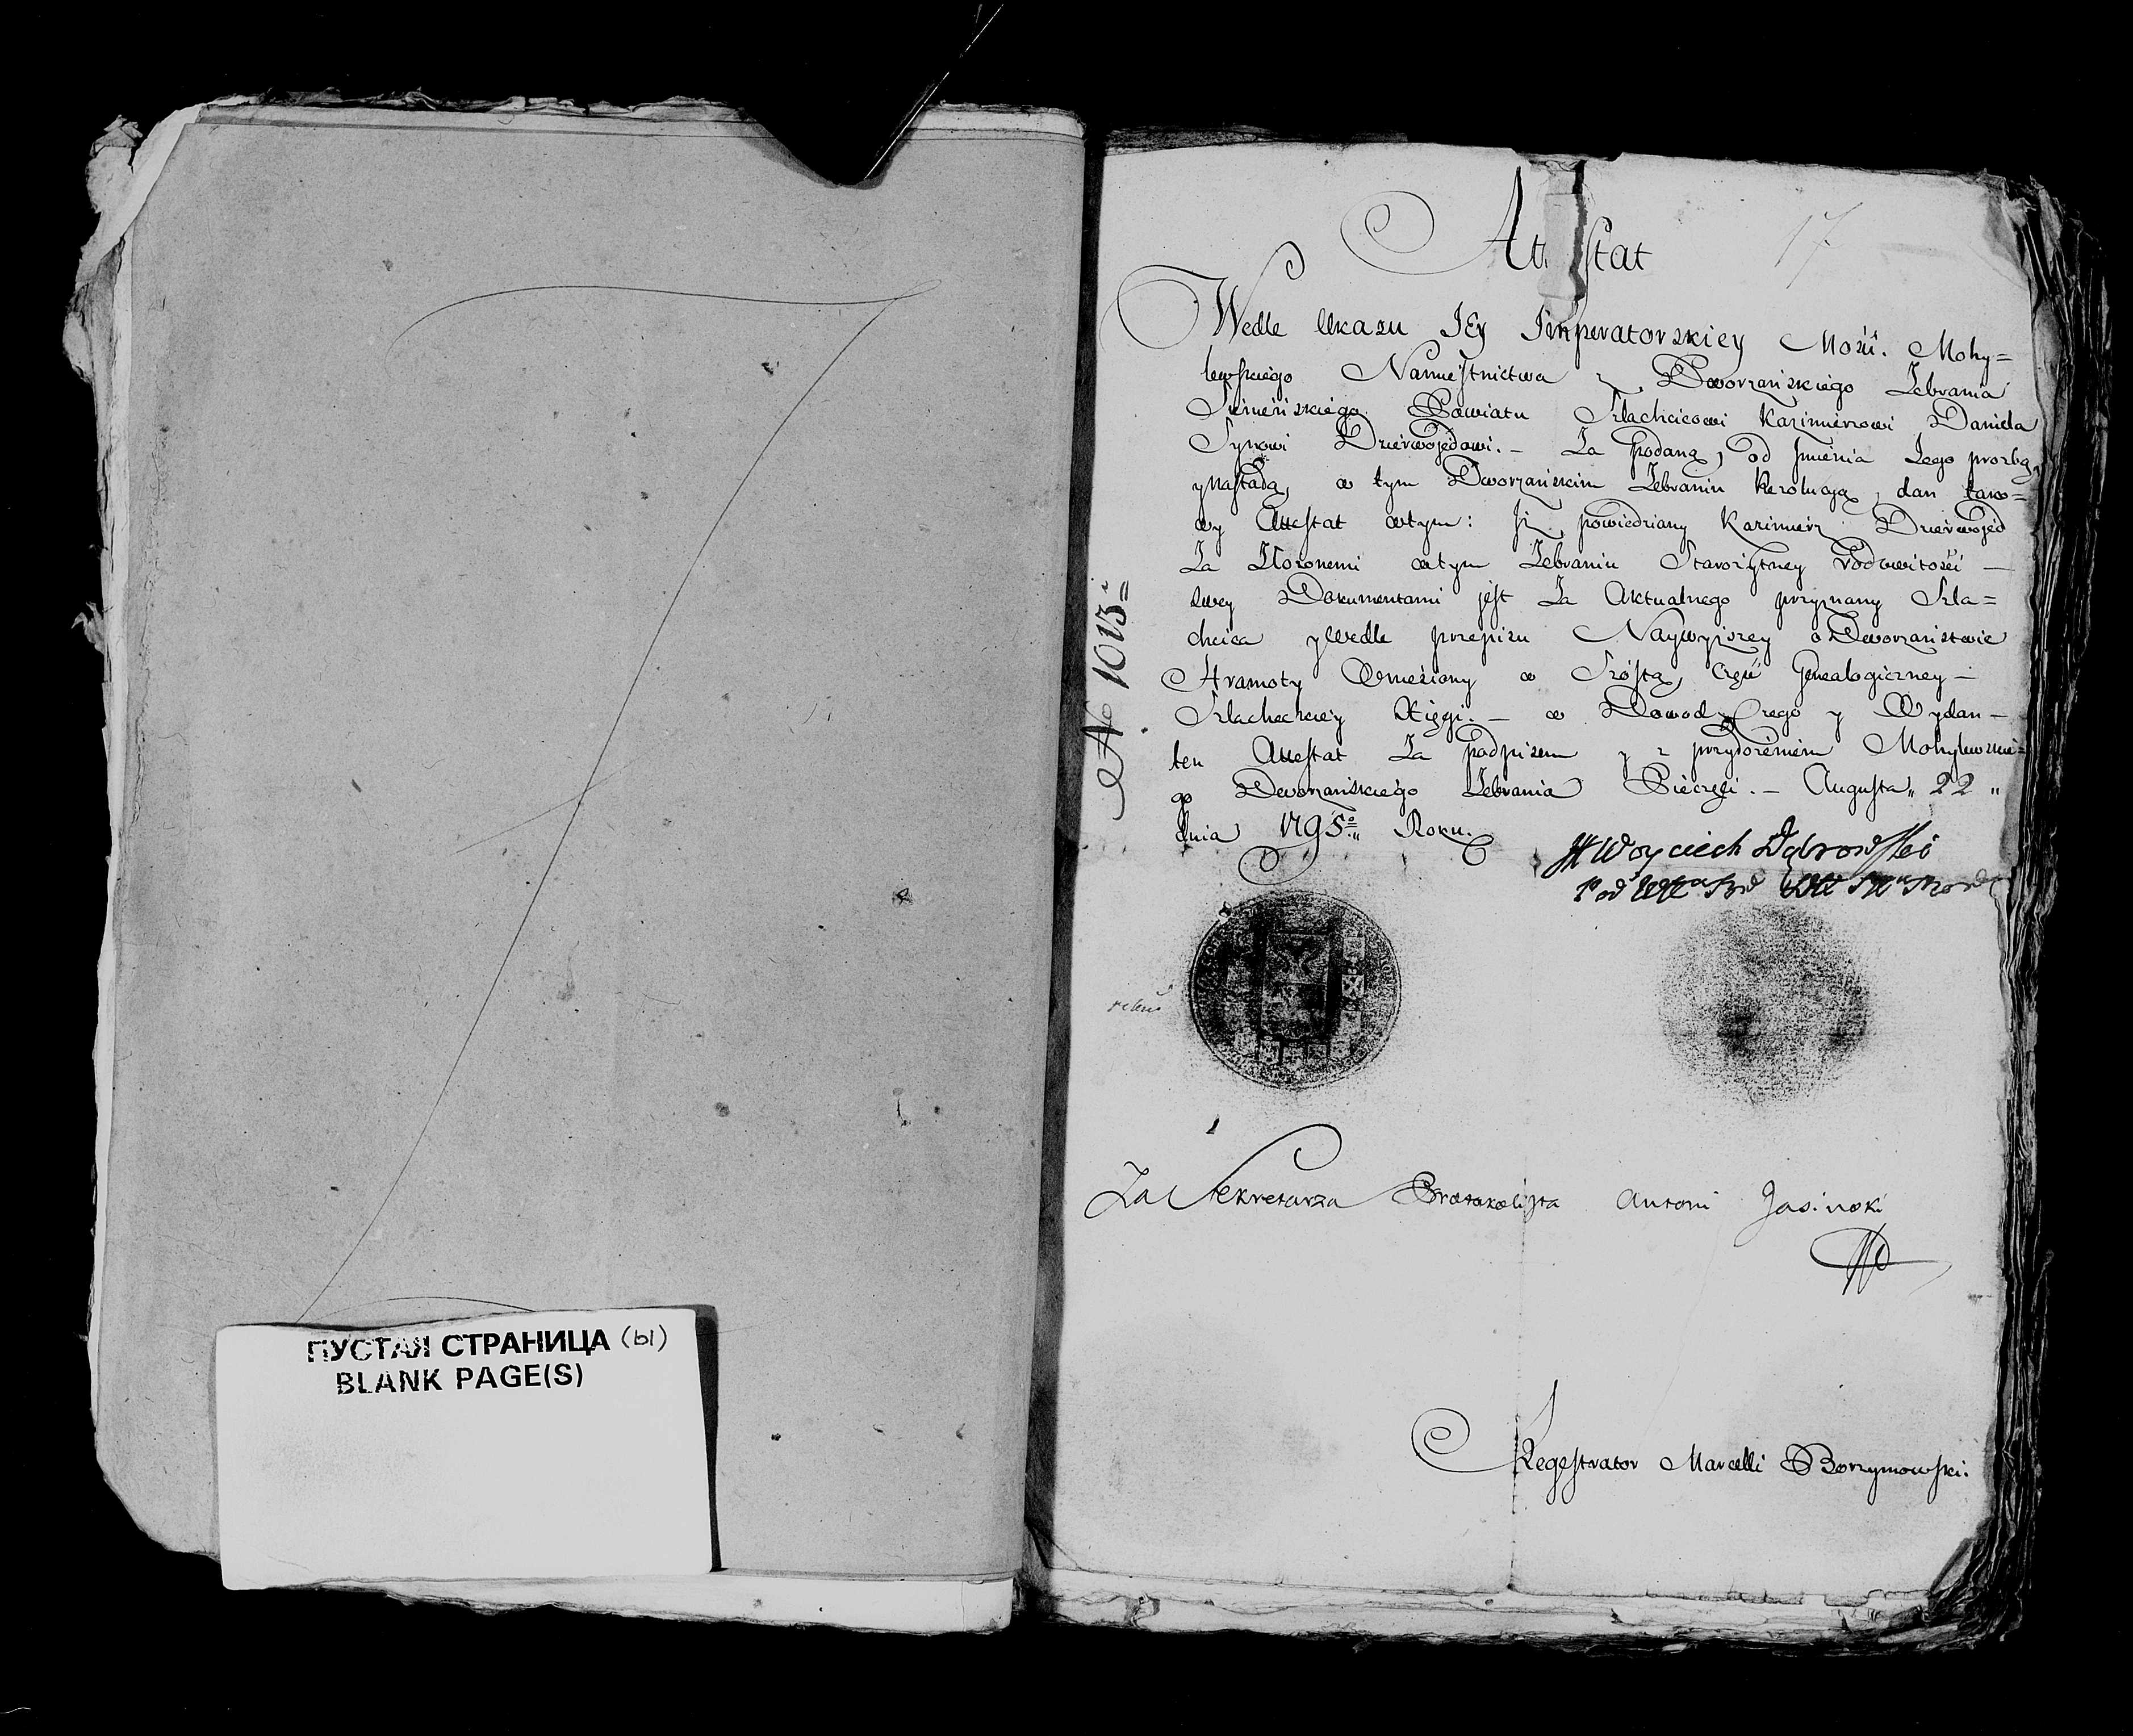 17
Attestat
Wedle Ukazu JEy Imperatorskiey Mości. Mohy=
lewskiego Namiestnictwa z Dworzańskiego Zebrania
Sieńieńskiego Powiatu Szlachcicowi Kazimierzowi Daniela
Synowi Dzierwojedowi.- Za podaną, od Jmienia Jego prozbą,
y nastałą, w tym Dworzańskim Zebraniu Rezolucyą, dan takow=
wy Attestat wtym: Jż powiedziany Kazimierz Dzierwojed
Za złożonemi wtym Zebraniu Starożytney rodowitości -
swey Dokumentami jest Za Aktualnego przyznany Szla=
chcica y Wedle przepisu Naywyższey o Dworzaństwie
Hramoty Wnieśiony w Szóstą, Część Genealogiczney -
Szlacheckiey Xięgi.- w Dowod Czego y Wydan -
ten Attestat Za podpisem y z przyłożeniem Mohylewskie=
go Dworzańskiego Zebrania Pieczęći.- Augusta„ 22 „
dnia 1795º Roku.
Woyciech Dąbrowski
№ 1013
Za Sekretarza Protokolista Antoni Jasinski
Regestrator Marcelli Borzymowski.
ПУСТАЯ СТРАНИЦА (Ы)
BLANK PAGE(S)